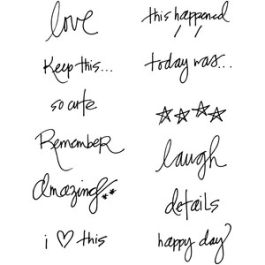 love
this happened
Keep this...
today was...
so cute
Remember
laugh
Amazing**
details
i ♡ this
happy day